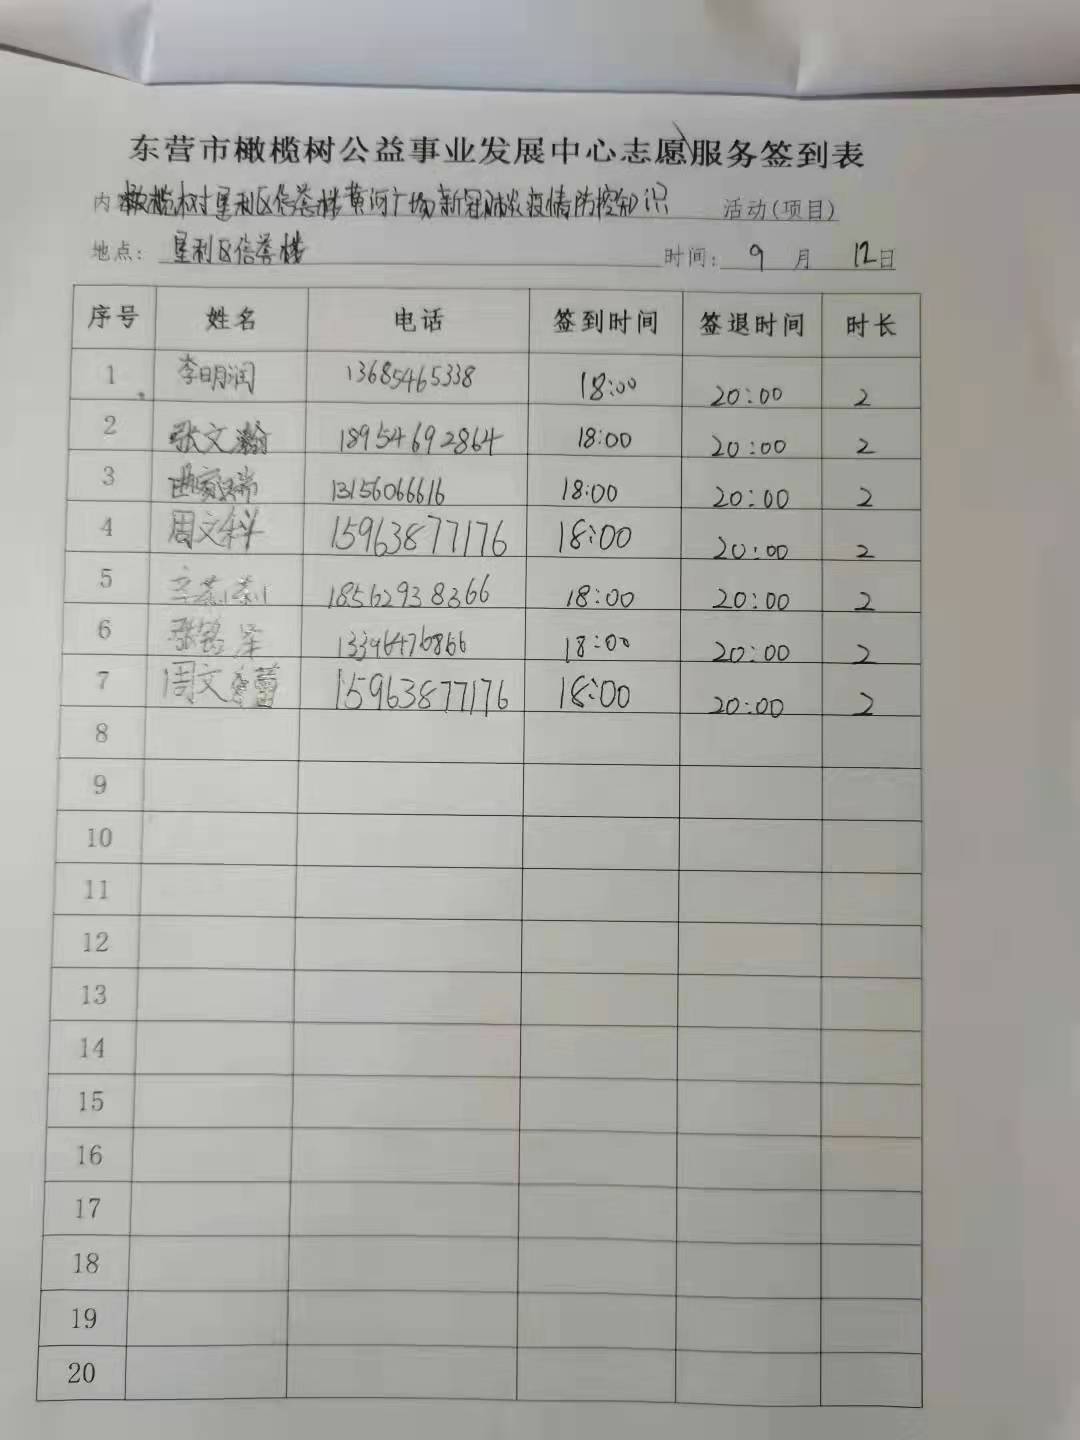 东营市橄榄树公益事业发展中心志愿服务签到表
内 橄榄树垦利区信誉楼黄河广场新冠肺炎疫情防控知识 活动(项目)
地点: 垦利区信誉楼 时间: 9 月 12日
序号 姓名 电话 签到时间 签退时间 时长
1 李明润 13685465338 18:00 20:00 2
2 张文瀚 18954692864 18:00 20:00 2
3 瑞 13156066616 18:00 20:00 2
4 周文科 15963877176 18:00 20:00 2
5 18562938366 18:00 20:00 2
6 张铭泽 13396476866 18:00 20:00 2
7 周文蕾 15963877176 18:00 20:00 2
8
9
10
11
12
13
14
15
16
17
18
19
20